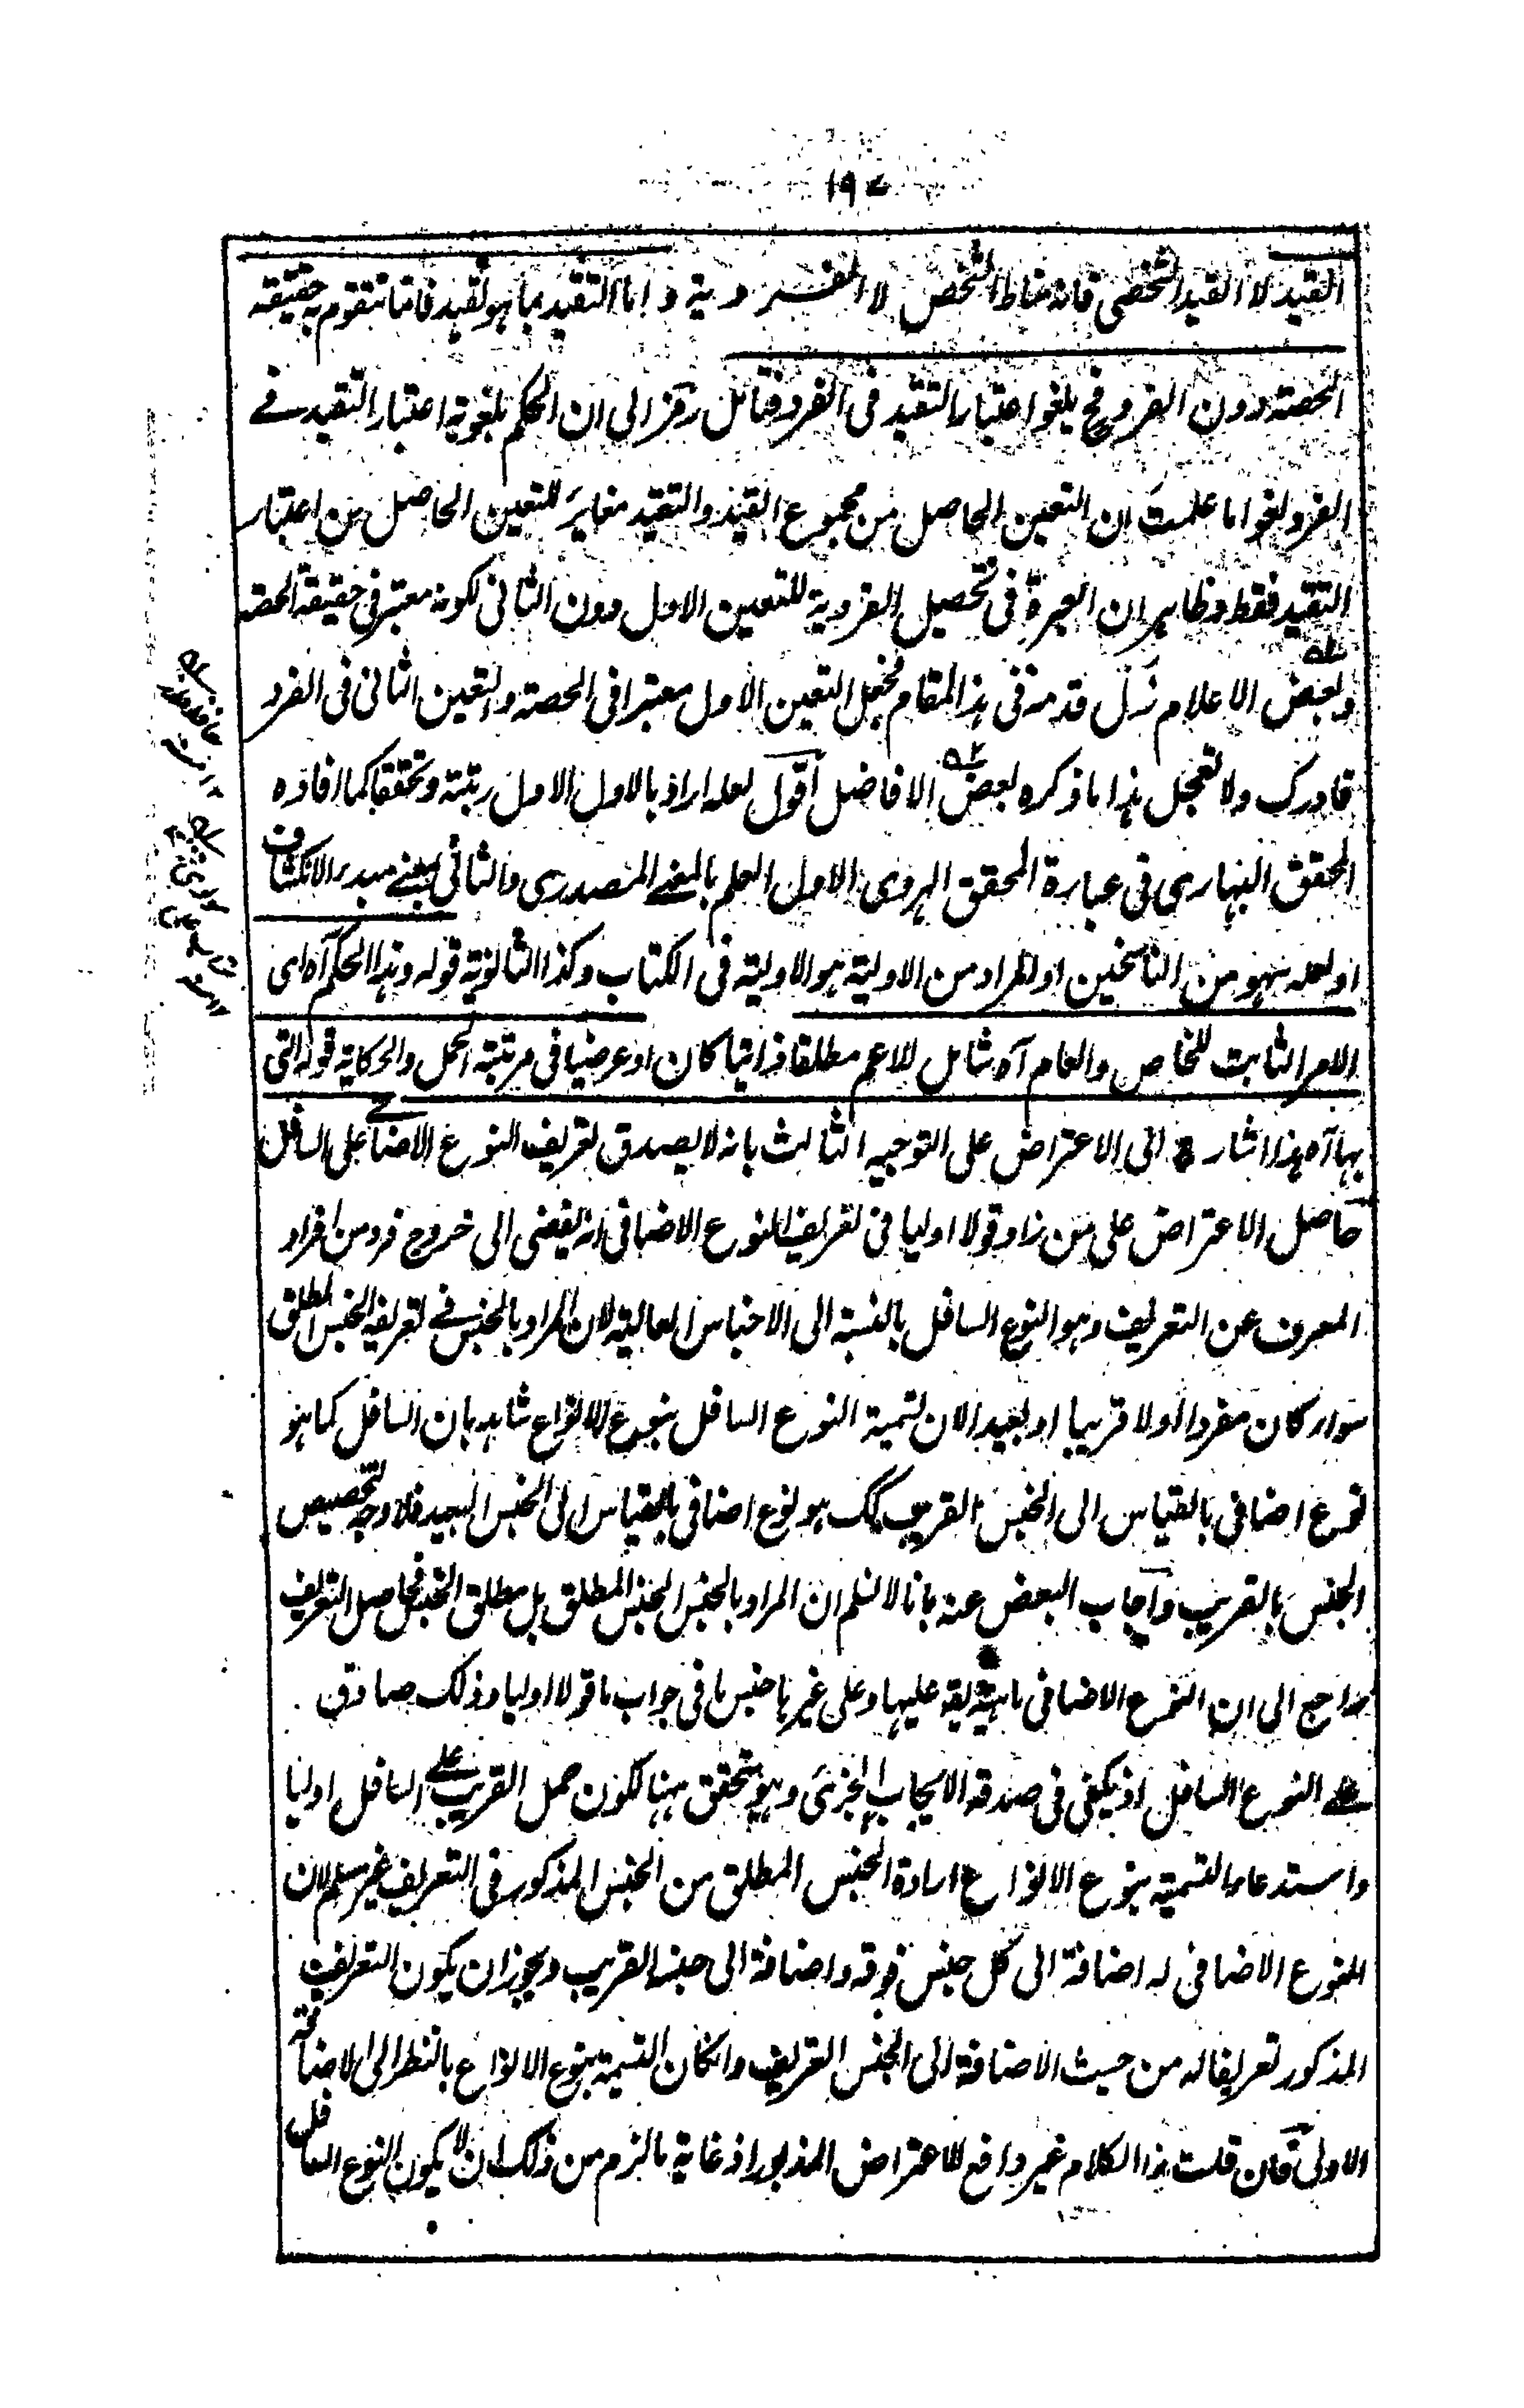 ١٩٧
القيد لا القيد الشخصي فانه مناط الشخص لا الفردية واما التقيد بما هو تقيد فانما تتقوم به حقيقة
الحصة دون الفرد فح يلغو اعتبار التقيد في الفرد فتامل رمز الى ان الحكم بلغوية اعتبار التقيد في
الفرد لغو اما علمت ان التعين الحاصل من مجموع القيد والتقيد مغاير للتعين الحاصل من اعتبار
التقيد فقط وظاهر ان العبرة في تحصيل الفردية للتعين الاول دون الثاني لكونه معتبر في حقيقة الحصة
وبعض الاعلام زل قدمه في هذا المقام فجعل التعين الاول معتبرا في الحصة والتعين الثاني في الفرد
فادرك ولا تعجل هذا ما ذكره بعض الافاضل اقول لعله اراد بالاول الاول رتبة وتحققا كما افاده
المحقق البهاري في عبارة المحقق الهروي الاول العلم بالمعنى المصدري والثاني بمعنى مبدء الانكشاف
او لعله سهو من الناسخين او المراد من الاولية هو الاولية في الكتاب وكذا الثانوية قوله وهذا الحكم آه اى
الامر الثابت للخاص والعام آه شامل للاعم مطلقا ذاتيا كان او عرضيا في مرتبة الحمل والحكاية قوله التى
بها آه هذا اشارة الى الاعتراض على التوجيه الثالث بانه لا يصدق تعريف النوع الاضافى على السافل
حاصل الاعتراض على من زاد قولا اوليا في تعريف النوع الاضافى انه يفضى الى خروج فرد من افراد
المعرف عن التعريف وهو النوع السافل بالنسبة الى الاجناس العالية لان المراد بالجنس في تعريفه الجنس المطلق
سواء كان مفردا اولا قريبا او بعيدا لان تسمية النوع السافل بنوع الانواع شاهد بان السافل كما هو
نوع اضافى بالقياس الى الجنس القريب كك هو نوع اضافى بالقياس الى الجنس البعيد فلا وجه لتخصيص
الجنس بالقريب واجاب البعض عنه بانا لا نسلم ان المراد بالجنس الجنس المطلق بل مطلق الجنس فحاصل التعريف
راجع الى ان النوع الاضافى ماهية يق عليها وعلى غيرها جنس ما فى جواب ما قولا اوليا وذلك صادق
على النوع السافل اذ يكفى فى صدقه الايجاب الجزئى وهو متحقق ههنا لكون حمل القريب على السافل اوليا
واستدعاء التسمية بنوع الانواع ارادة الجنس المطلق من الجنس المذكور فى التعريف غير مسلم لان
للنوع الاضافى له اضافة الى كل جنس فوقه واضافة الى جنسه القريب ويجوز ان يكون التعريف
المذكور تعريفا له من حيث الاضافة الى الجنس القريب وانكان التسمية بنوع الانواع بالنظر الى الاضافة
الاولى فان قلت هذا الكلام غير دافع للاعتراض المذبور اذ غاية ما لزم من ذلك ان لا يكون النوع السافل